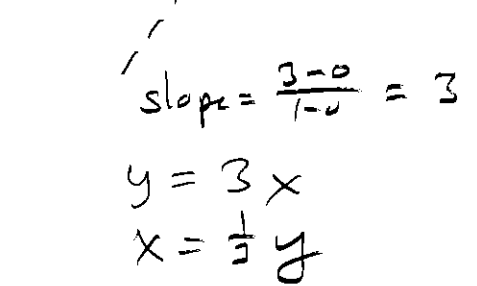 slope = \frac{3-0}{1-0} = 3
y = 3x
x = \frac{1}{3} y